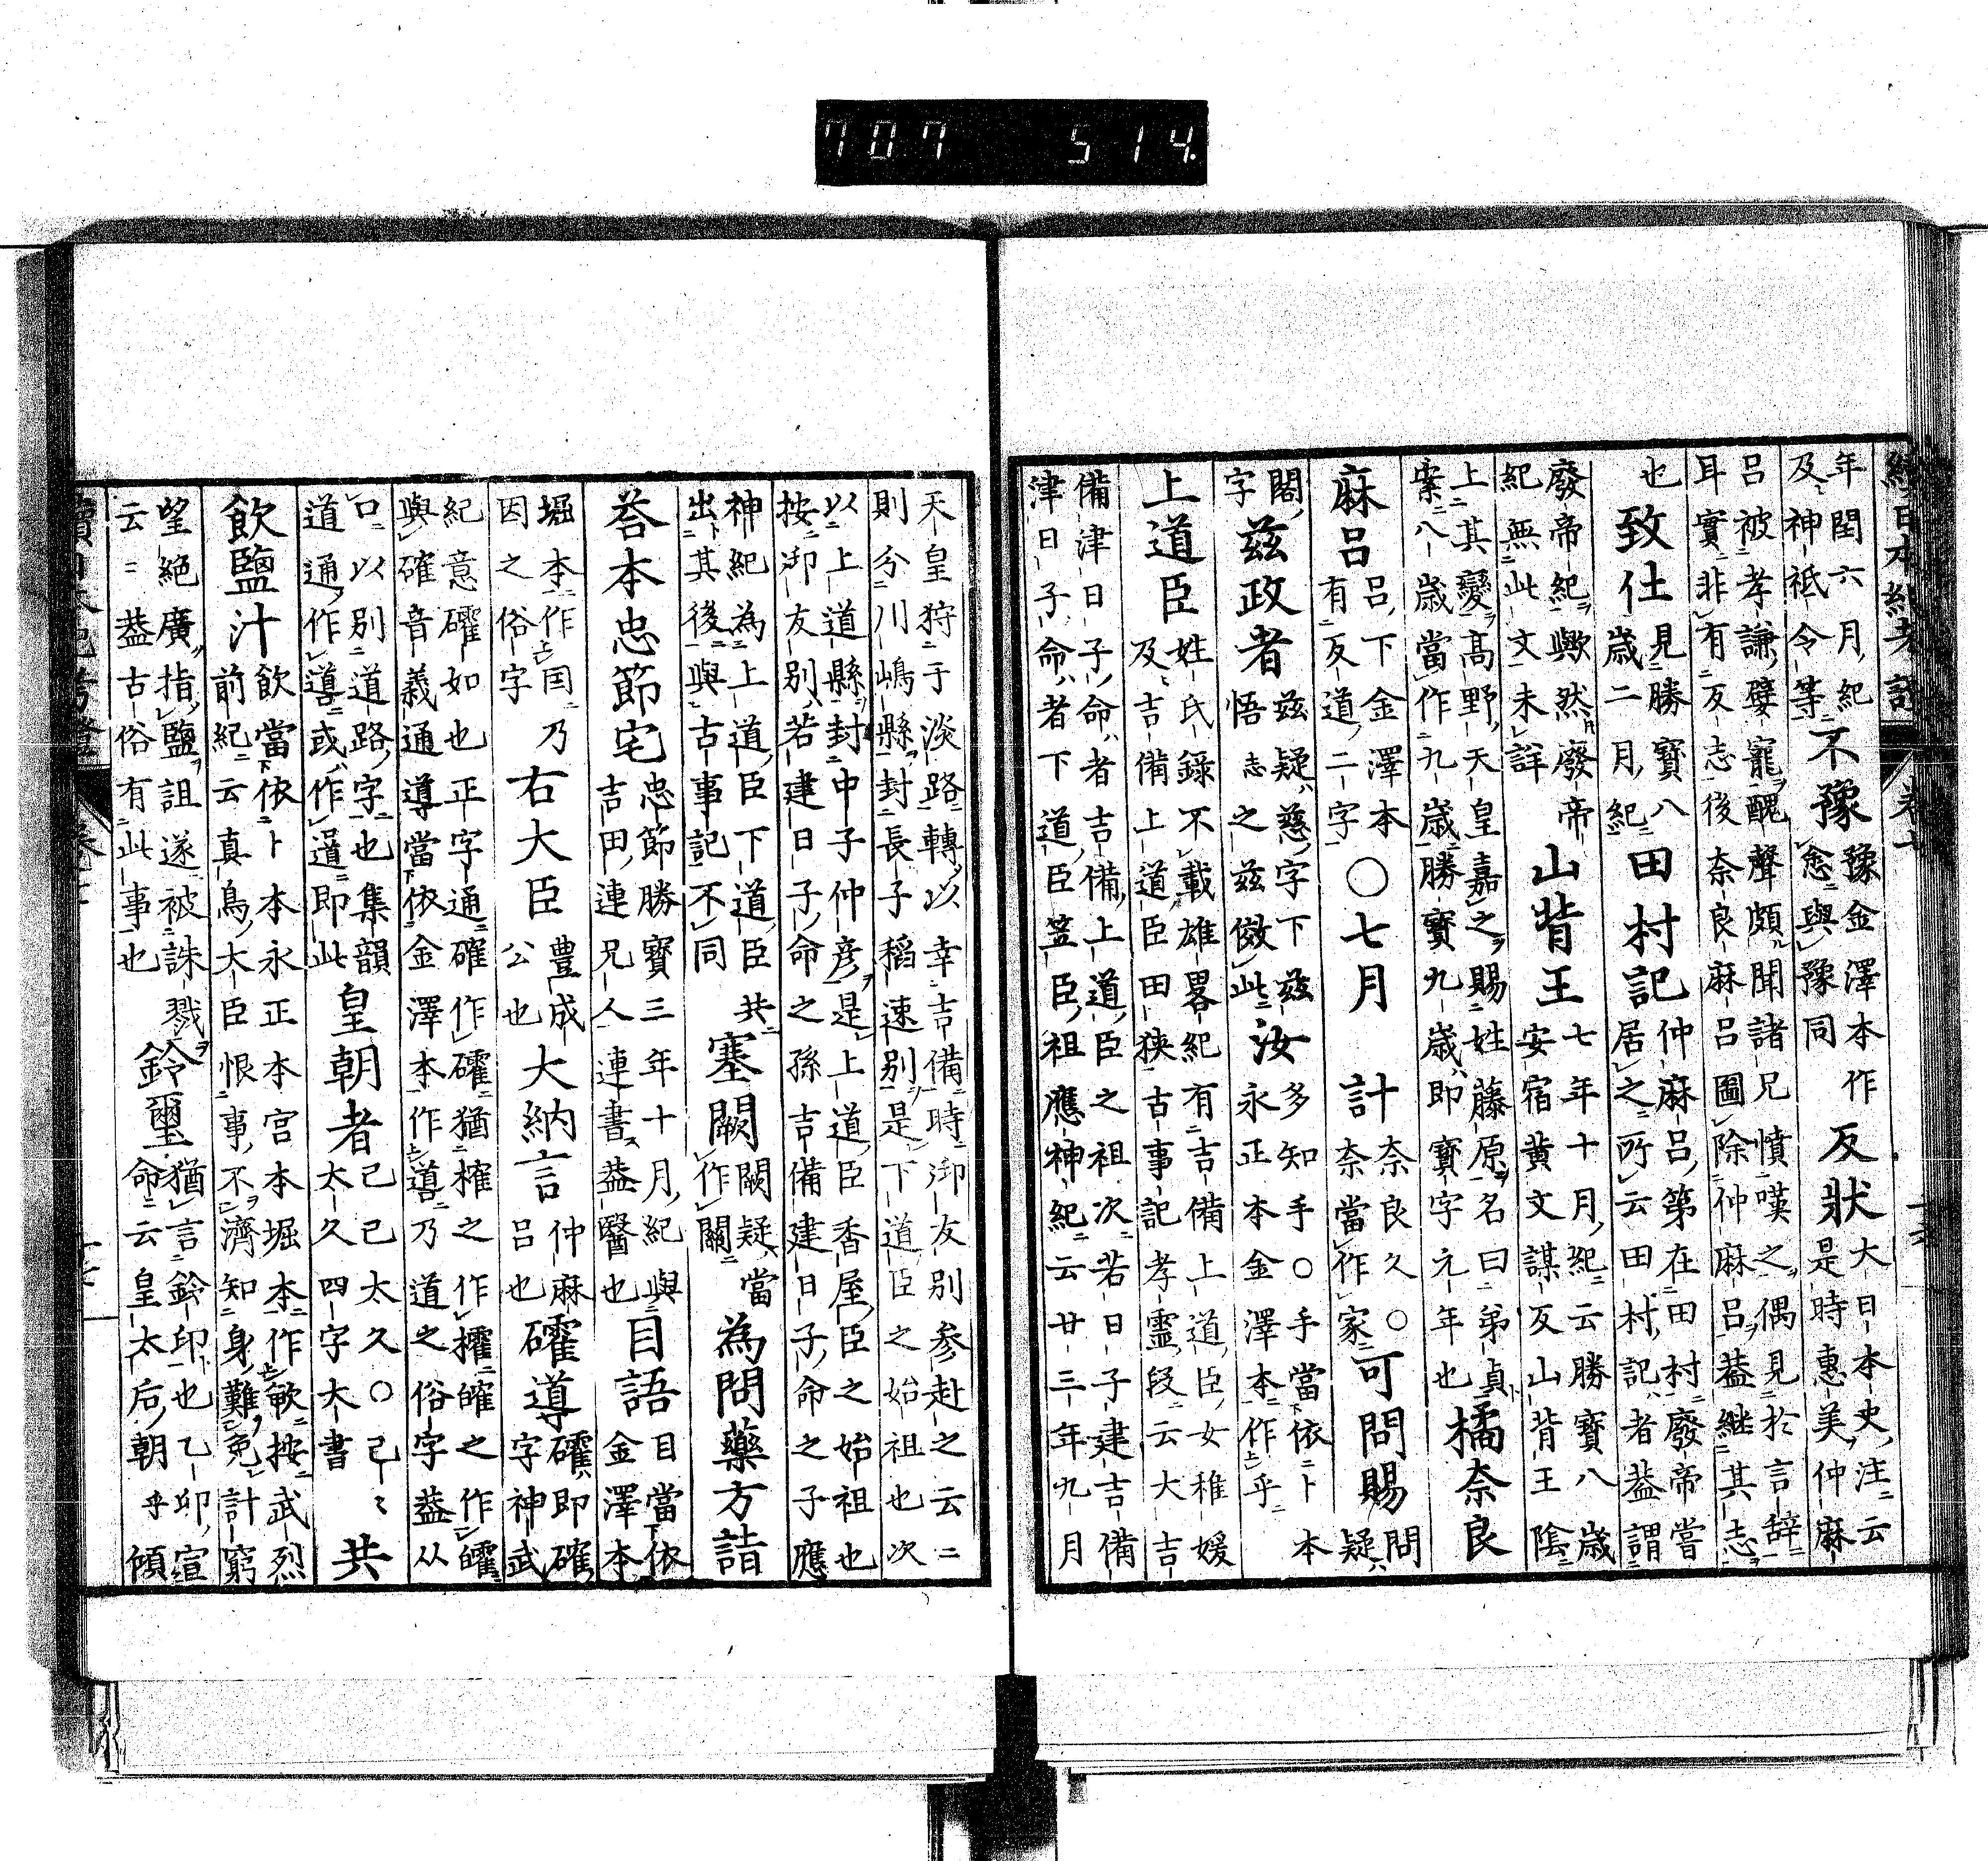 707 514
續日本紀考證 卷七
年閏六月紀
及神祇令等 不豫 豫金澤本作
悆與豫同 反狀 大日本史注云
是時惠美仲麻
呂被孝謙嬖寵醜聲頗聞諸兄憤嘆之偶見於言辭
耳實非有反志後奈良麻呂圖除仲麻呂蓋繼其志
也 致仕 見勝寶八
歲二月紀 田村記 仲麻呂第在田村廢帝嘗
居之所云田村記者蓋謂
廢帝紀歟然廢帝
紀無此文未詳 山背王 七年十月紀云勝寶八歲
安宿黃文謀反山背王陰
上其變高野天皇嘉之賜姓藤原名曰弟貞
案八歲當作九歲勝寶九歲即寶字元年也 橘奈良
麻呂 呂下金澤本
有反道二字 ○七月 計 奈良久○
奈當作家 可問賜 問
疑
閤 茲政者 茲疑慈字下茲
字 悟志之茲倣此 汝 多知手○手當依卜本
永正本金澤本作乎
上道臣 姓氏錄不載雄畧紀有吉備上道臣女稚媛
及吉備上道臣田狹古事記孝靈段云大吉
備津日子命者吉備上道臣之祖次若日子建吉備
津日子命者下道臣笠臣祖應神紀云廿三年九月
天皇狩于淡路轉以幸吉備時御友別參赴之云二
則分川嶋縣封長子稻速別是下道臣之始祖也次
以上道縣封中子仲彥是上道臣香屋臣之始祖也
按御友別若建日子命之孫吉備建日子命之子應
神紀為上道臣下道臣共
出其後與古事記不同 塞闕 闕疑當
作關 為問藥方詰
荅本忠節宅 忠節勝寶三年十月紀與
吉田連兄人連書蓋醫也 目語 目當依
金澤本
堀本作囯乃
因之俗字 右大臣 豊成
公也 大納言 仲麻
呂也 礭導 礭即確
字神武
紀意礭如也正字通確作礭猶榷之作㩴皠之作皬
與確音義通導當依金澤本作噵乃道之俗字蓋从
口以別道路字也集韻
道通作噵或作道即此 皇朝者 己己太久○己〻
太久四字大書 共
飲鹽汁 飲當依卜本永正本宮本堀本作敏按武烈
前紀云真鳥大臣恨事不濟知身難免計窮
望絕廣指鹽詛遂被誅戮
云〻蓋古俗有此事也 鈴璽 猶言鈴印也乙卯宣
命云皇太后朝乎傾
續日本紀考證 卷七